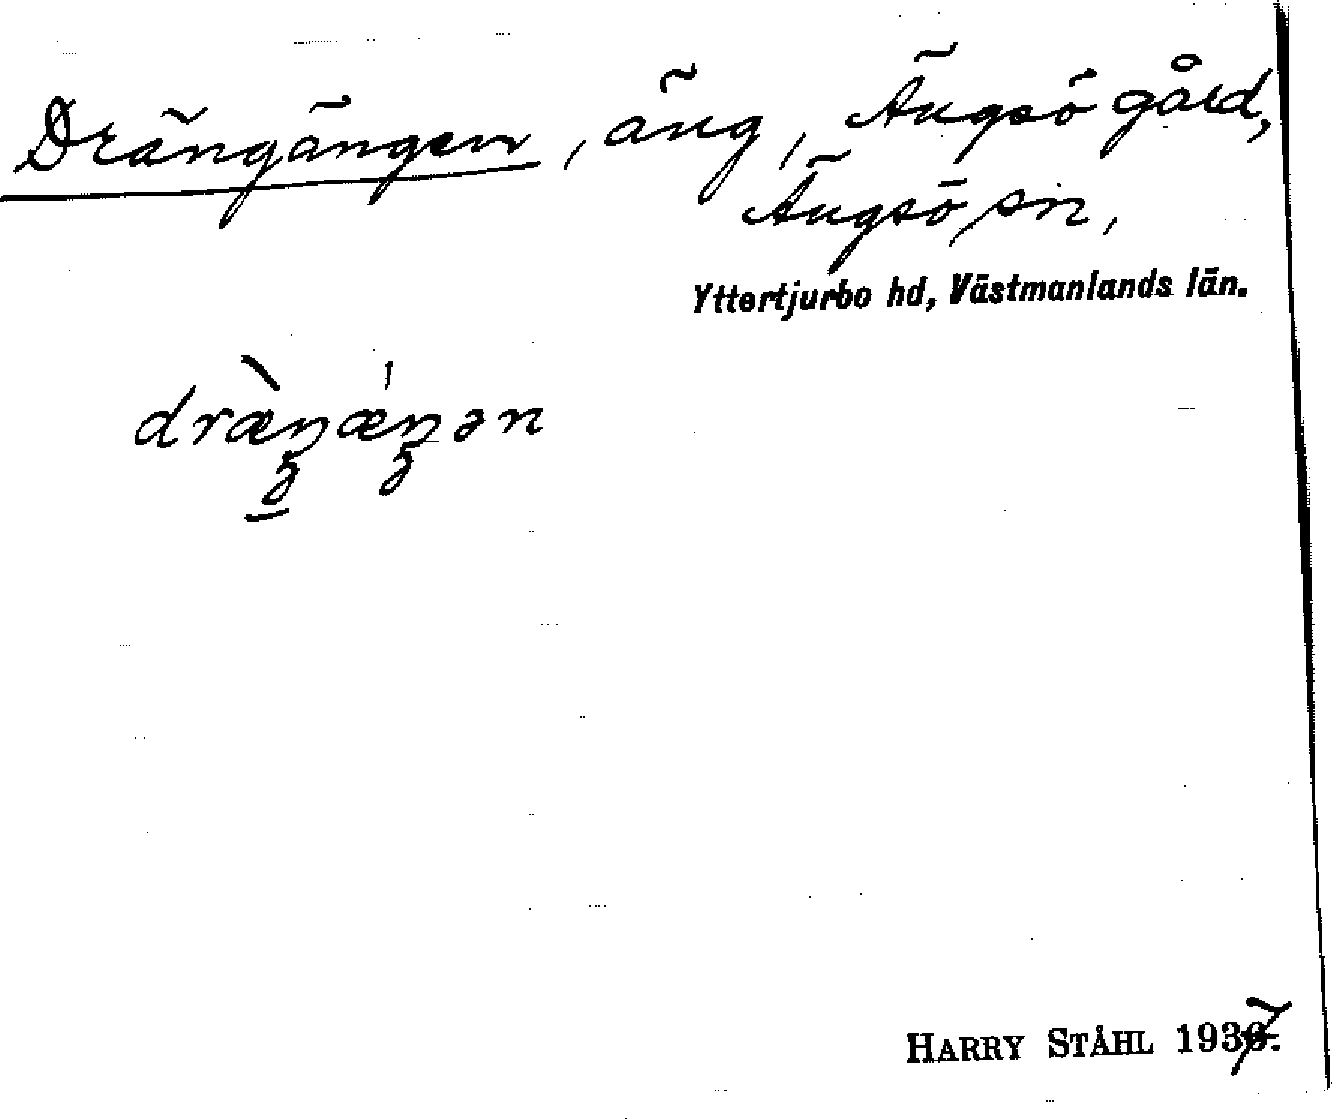 Drängängen, äng, Ängsö gård,
Ängsö sn,
Yttertjurbo hd, Västmanlands län.
dræ̀ŋǽŋən
HARRY STÅHL 1937.